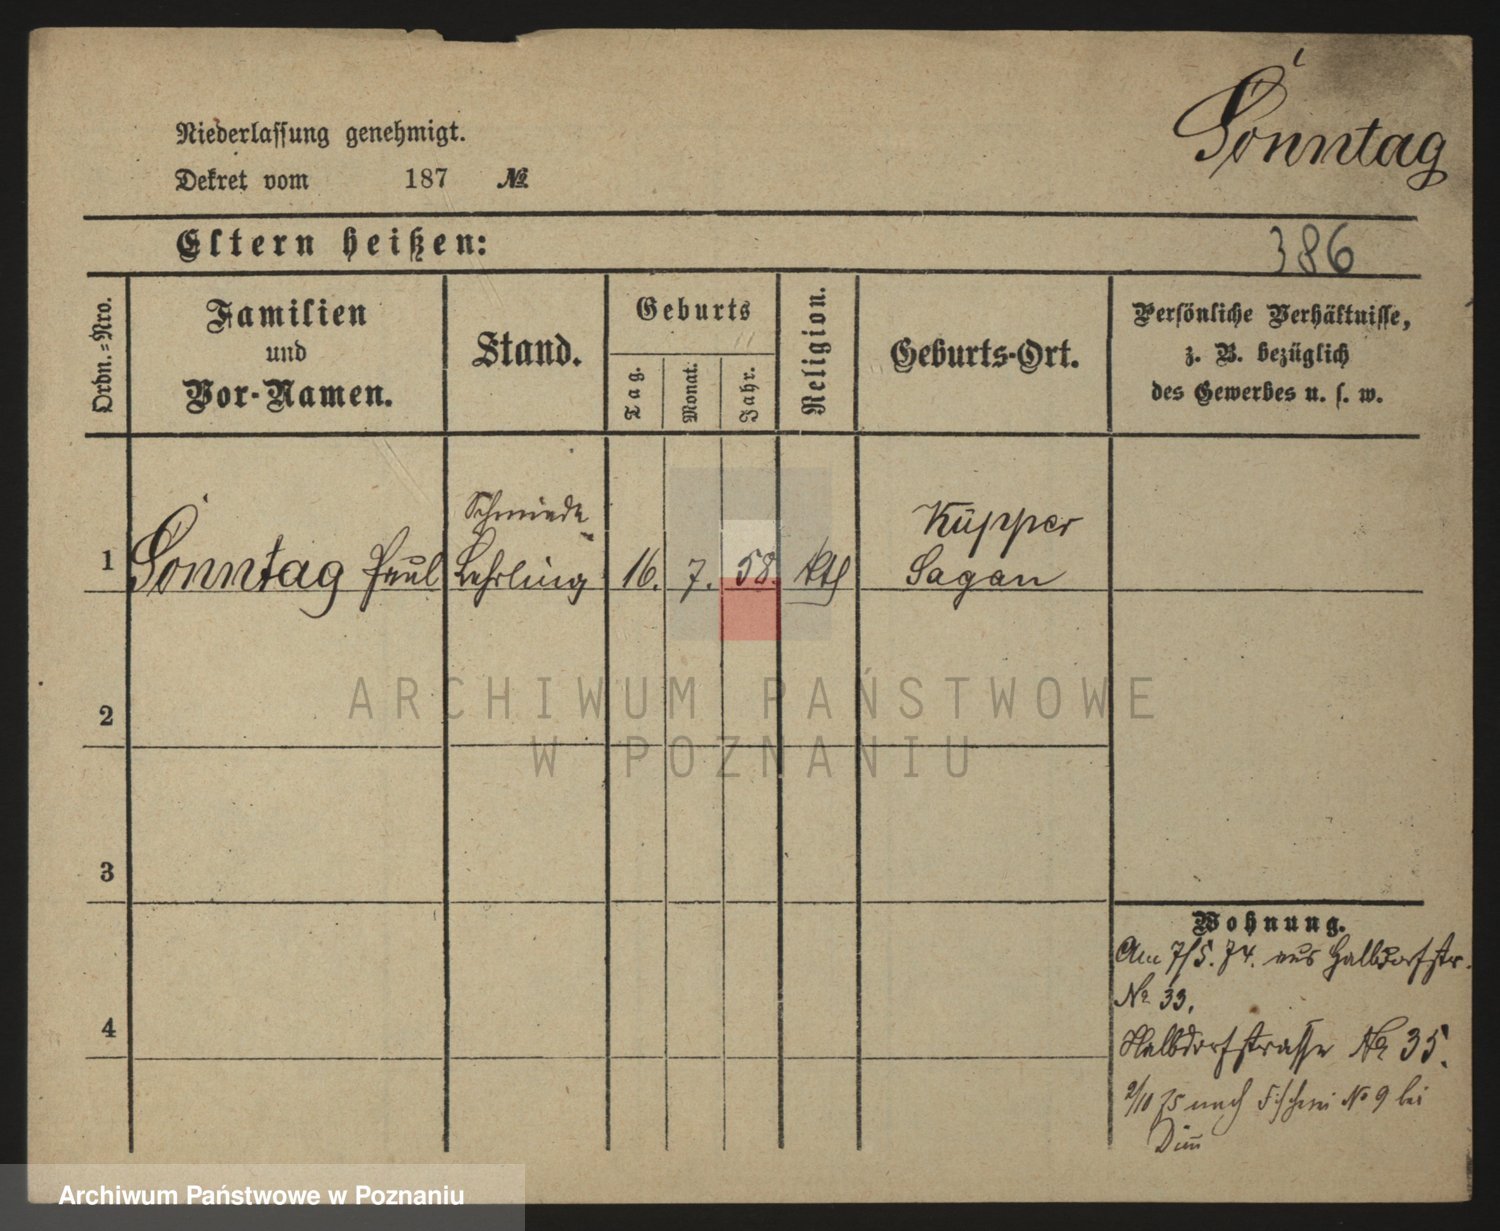 Sonntag
Niederlassung genehmigt.
Dekret vom 187 №
Eltern heißen:
386
Ordn.-Nro.
Familien
und
Vor-Namen.
Stand.
Geburts
Tag.
Monat.
Jahr.
Religion.
Geburts-Ort.
Persönliche Verhältnisse,
z. B. bezüglich
des Gewerbes u. s. w.
Schmiede
Küpper
1 Sonntag Paul Lehrling 16. 7. 58. kth Sagan
2
3
4
Wohnung.
Am 7/5. 74. aus Halbdorfstr.
№ 33.
Halbdorfstrasse № 35.
2/10 75 nach № 9 bei
ARCHIWUM PAŃSTWOWE
W POZNANIU
Archiwum Państwowe w Poznaniu